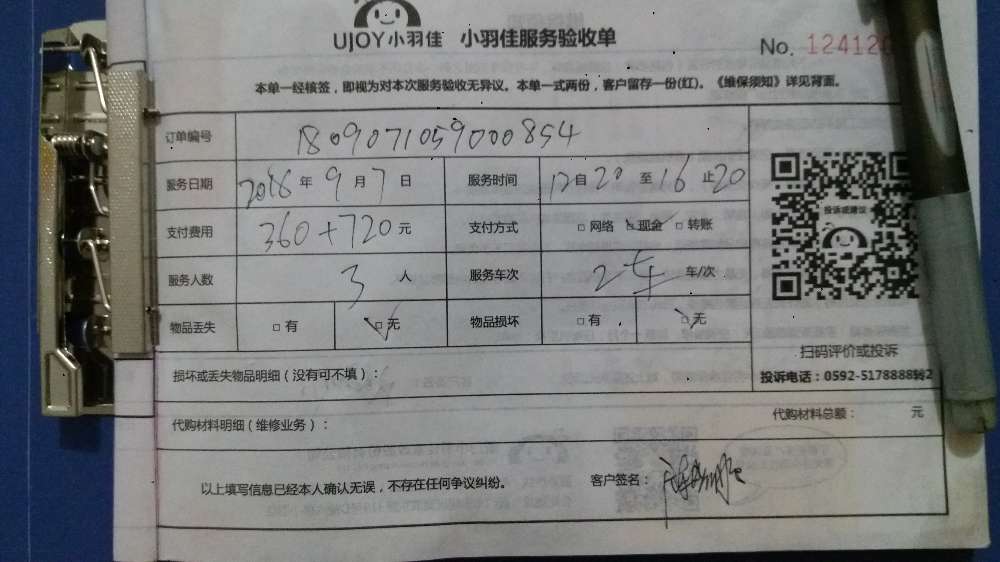 UJOY小羽佳 小羽佳服务验收单
No. 12412
本单一经核签，即视为对本次服务验收无异议。本单一式两份，客户留存一份(红)。《维保须知》详见背面。
订单编号 1809071059000854
服务日期 2018年9月7日 服务时间 12自20至16止20
支付费用 360+720元 支付方式 □网络 □现金 □转账
服务人数 3人 服务车次 2车 车/次
物品丢失 □有 □无 物品损坏 □有 □无
投诉或建议
扫码评价或投诉
投诉电话：0592-5178888转2
损坏或丢失物品明细（没有可不填）：
代购材料明细（维修业务）： 代购材料总额： 元
以上填写信息已经本人确认无误，不存在任何争议纠纷。 客户签名：